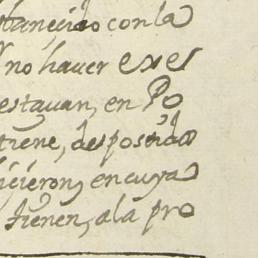 tablecido con la
no hauer exes
estauan, en Po
tiene, desposeida
icieron, en cuya
tienen, a la pro